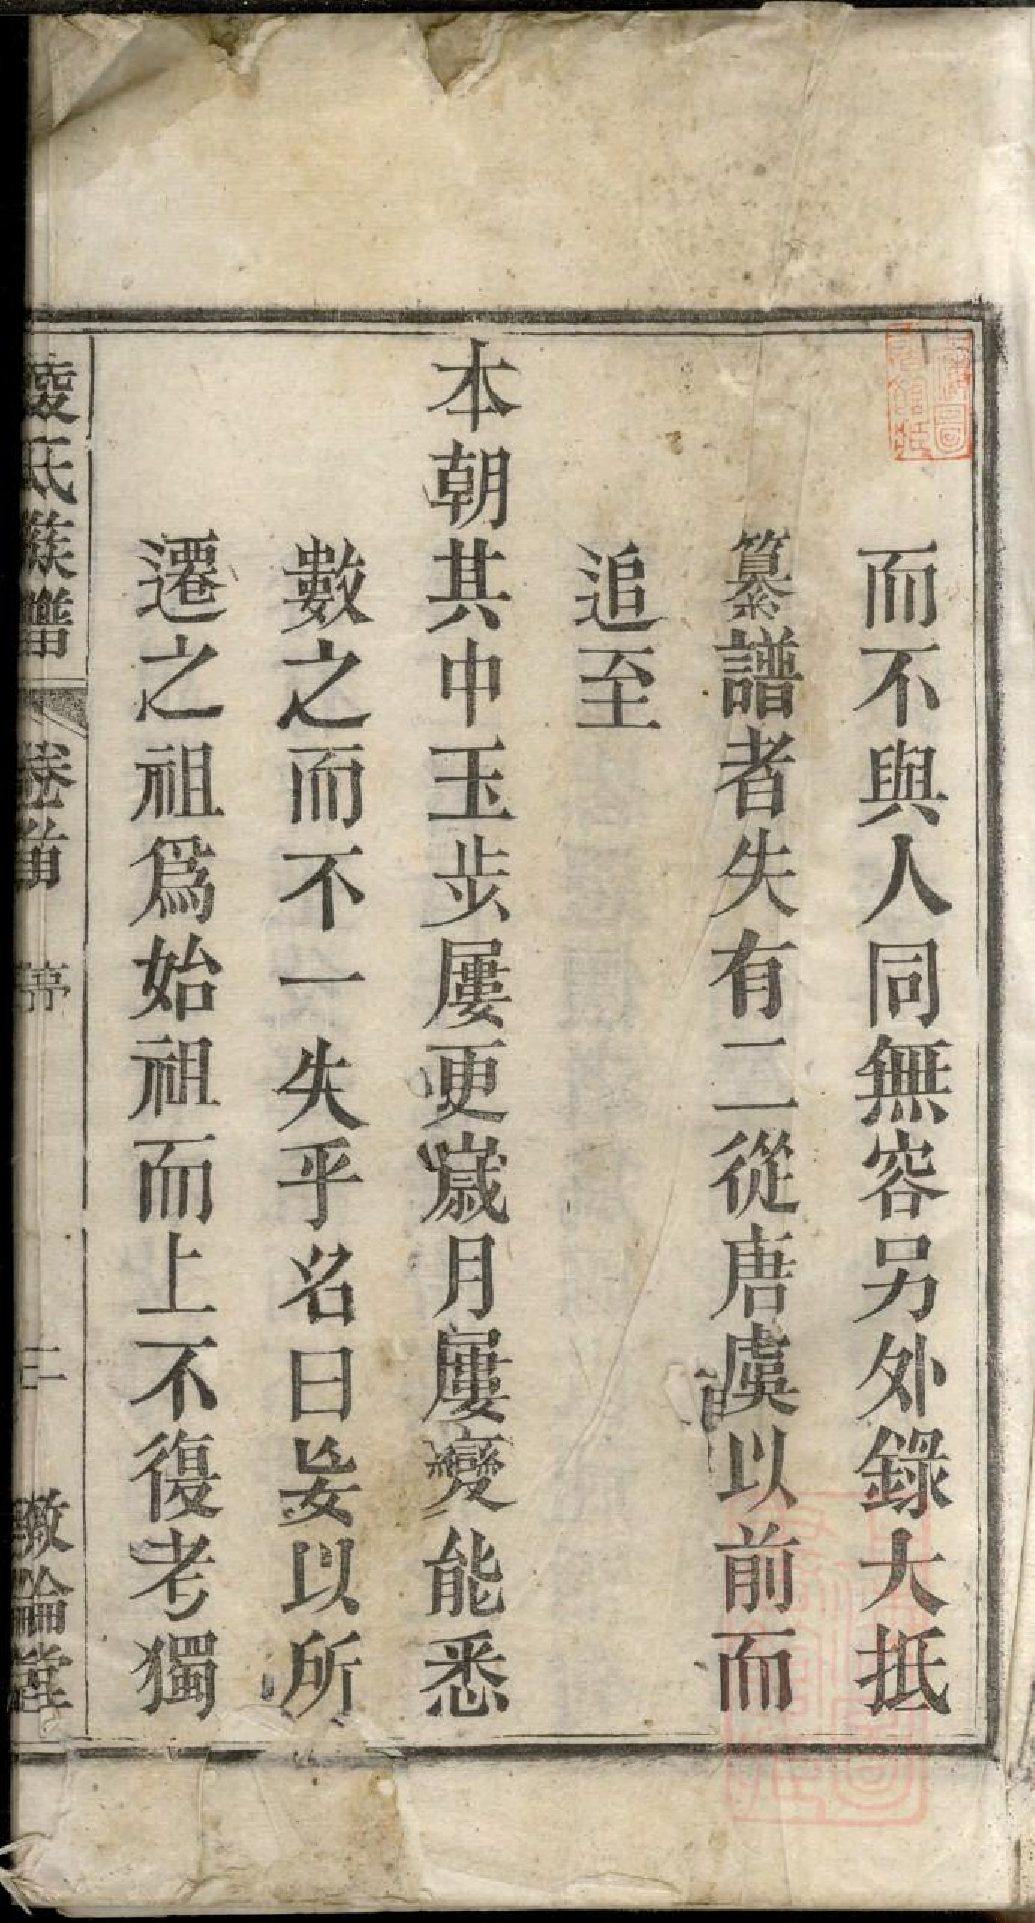 而不與人同無容另外錄大抵
纂譜者失有二從唐虞以前而
追至
本朝其中玉步屢更嵗月屢變能悉
數之而不一失乎名曰妄以所
遷之祖爲始祖而上不復考獨
氏蔟譜 卷首 三 敦倫堂